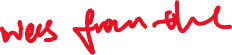 was from the